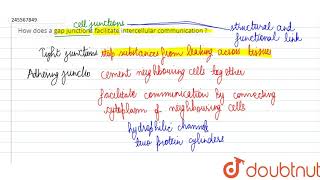 cell junctions
245567849
How does a gap junctions facilitate intercellular communication ?
structural and
functional link
Tight junctions stop substances from leaking across tissues
Adhering junctio cement neighbouring cells together
facilitate communication by connecting
cytoplasm of neighbouring cells
hydrophilic channels
two protein cylinders
doubtnut